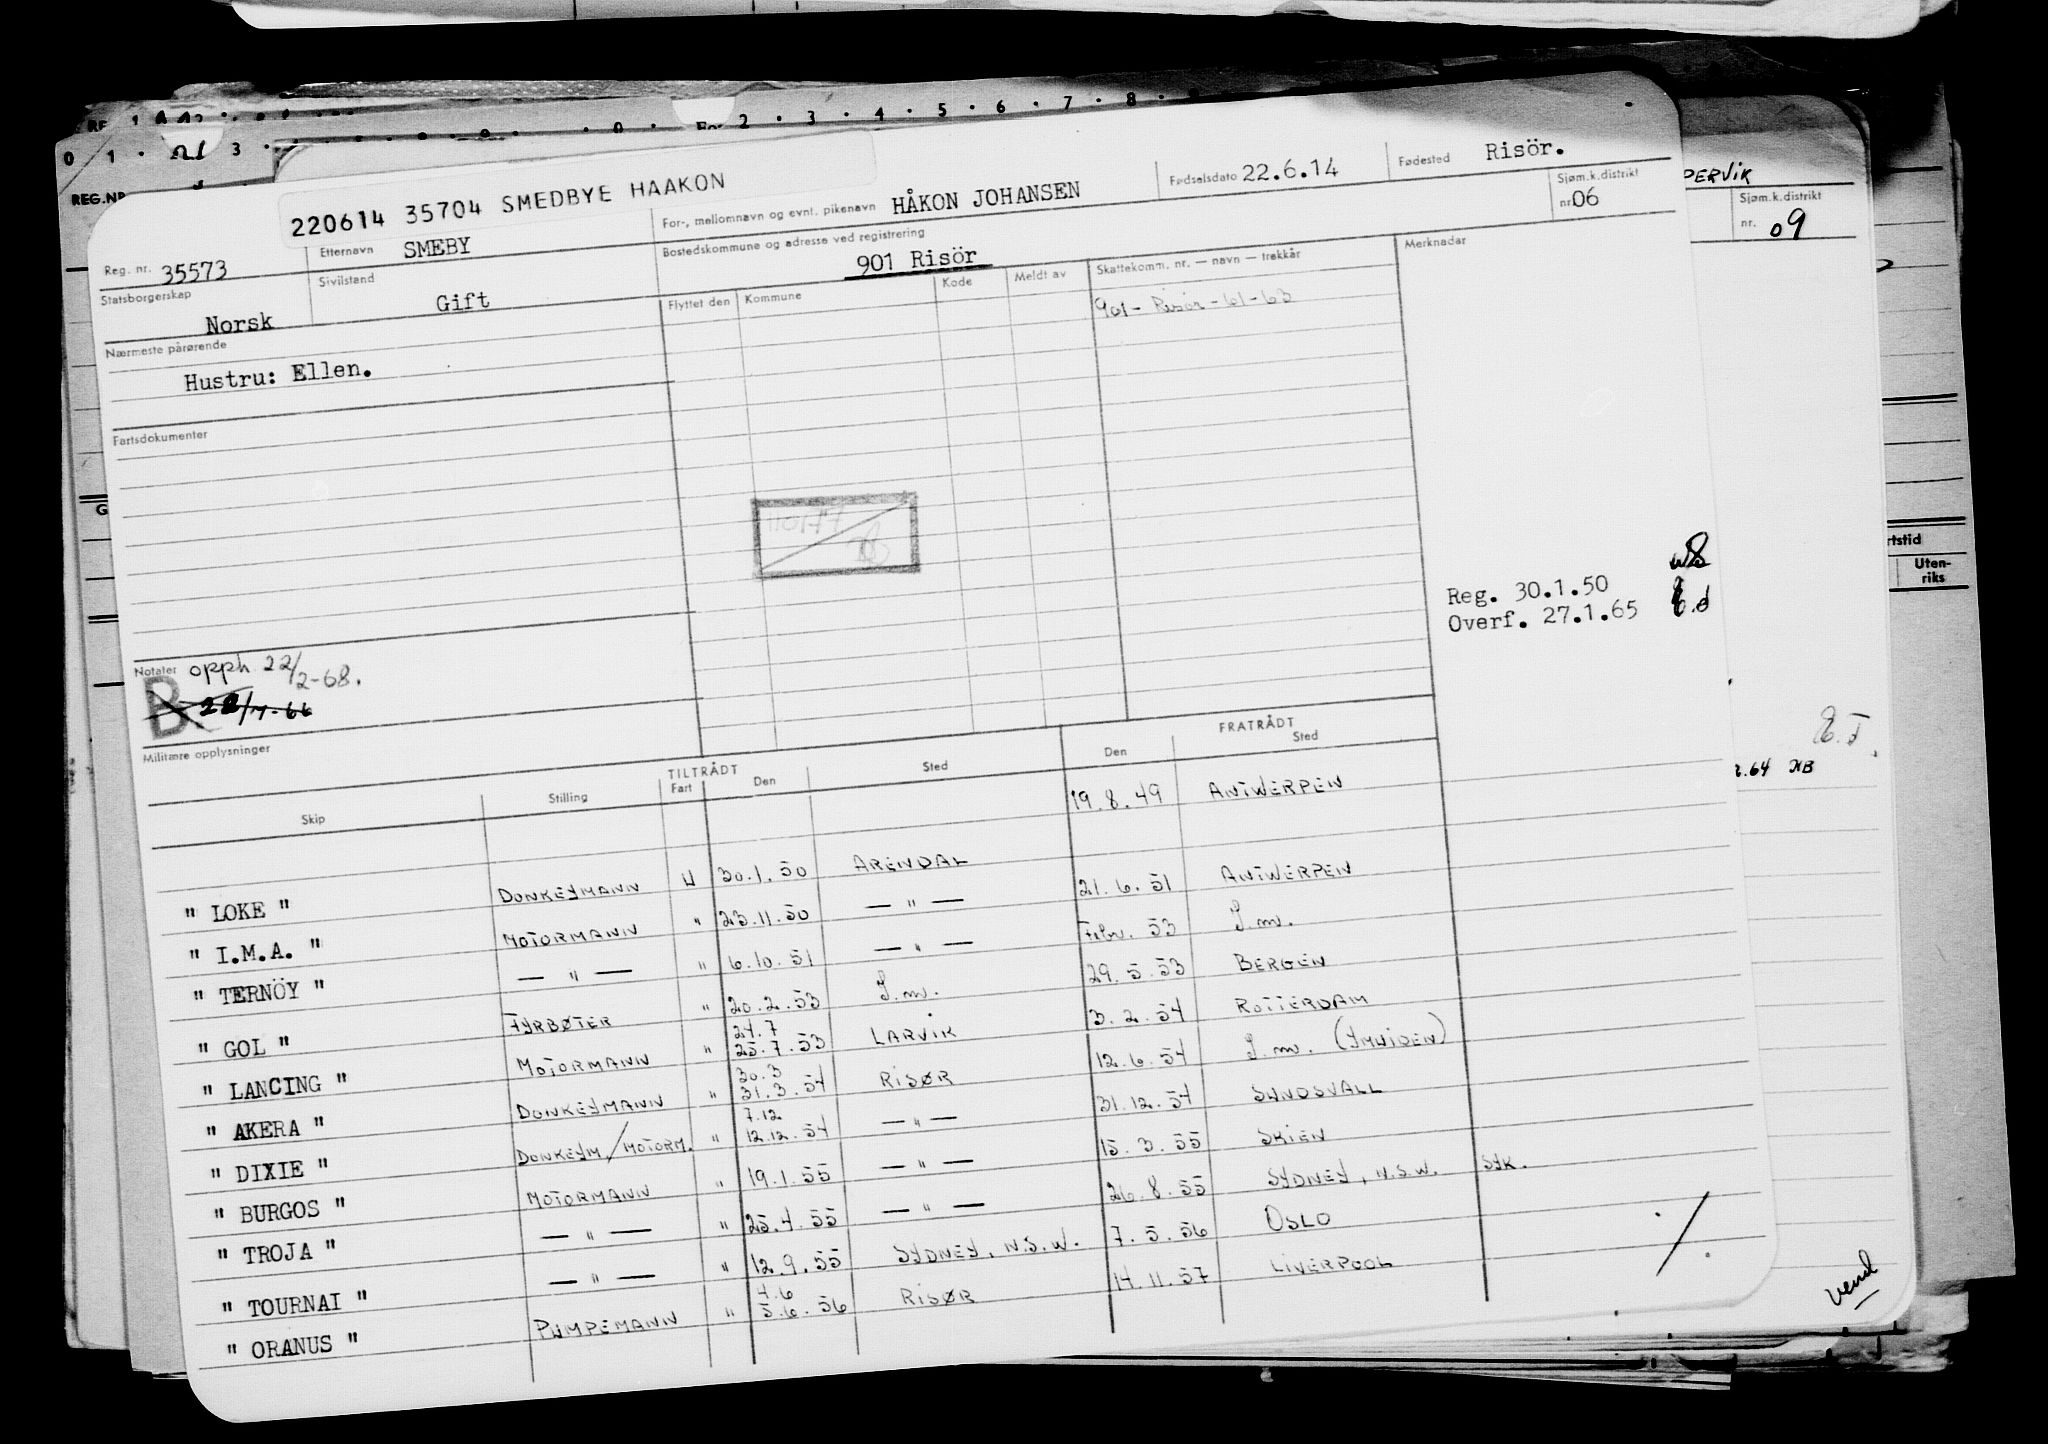 220614 35704 SMEDBYE HAAKON
Reg. nr. 35573
Etternavn SMEBY
For-, mellomnavn og evnt. pikenavn HÅKON JOHANSEN
Fødselsdato 22.6.14
Fødested Risör.
Statsborgerskap Norsk
Sivilstand Gift
Bostedskommune og adresse ved registrering 901 Risör
Sjøm.k.distrikt nr. 06
Nærmeste pårørende
Hustru: Ellen.
Flyttet den Kommune Kode Meldt av Skattekomm. nr. — navn — trekkår Merknader
901 - Risör - 61 - 63
Fartsdokumenter
Reg. 30.1.50
Overf. 27.1.65
Notater opph 22/2-68.
B
Militære opplysninger
TILTRÅDT FRATRÅDT
Skip Stilling Fart Den Sted Den Sted
19.8.49 ANTWERPEN
" LOKE " DONKEYMANN U 30.1.50 ARENDAL 21.6.51 ANTWERPEN
" I.M.A. " MOTORMANN " 23.11.50 — " — Febr. 53 S.m.
" TERNÖY " — " — " 6.10.51 — " — 29.5.53 BERGEN
" GOL " FYRBØTER " 20.2.53 S.m. 3.2.54 ROTTERDAM
" LANCING " MOTORMANN " 24.7 25.7.53 LARVIK 12.6.54 S.m. (YMUIDEN)
" AKERA " DONKEYMANN " 30.3 31.3.54 RISØR 31.12.54 SUNDSVALL
" DIXIE " DONKEYM/MOTORM. " 7.12 12.12.54 — " — 15.3.55 SKIEN
" BURGOS " MOTORMANN " 19.1.55 — " — 26.8.55 SYDNEY, N.S.W. SYK.
" TROJA " — " — " 25.4.55 — " — 7.5.56 OSLO
" TOURNAI " — " — " 12.9.55 SYDNEY, N.S.W. 14.11.57 LIVERPOOL
" ORANUS " PUMPEMANN " 4.6 5.6.56 RISØR
Sjøm.k.distrikt
nr. 09
Uten-
riks
vend